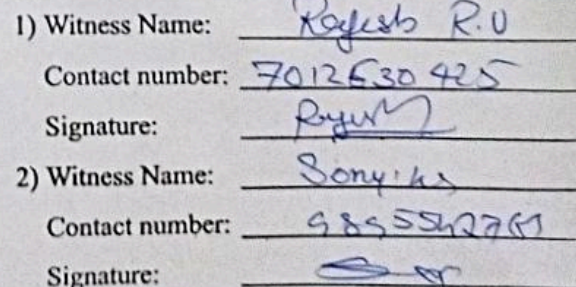 1) Witness Name: Rajesh R.U
Contact number: 7012630425
Signature:
2) Witness Name: Sony
Contact number:
Signature: